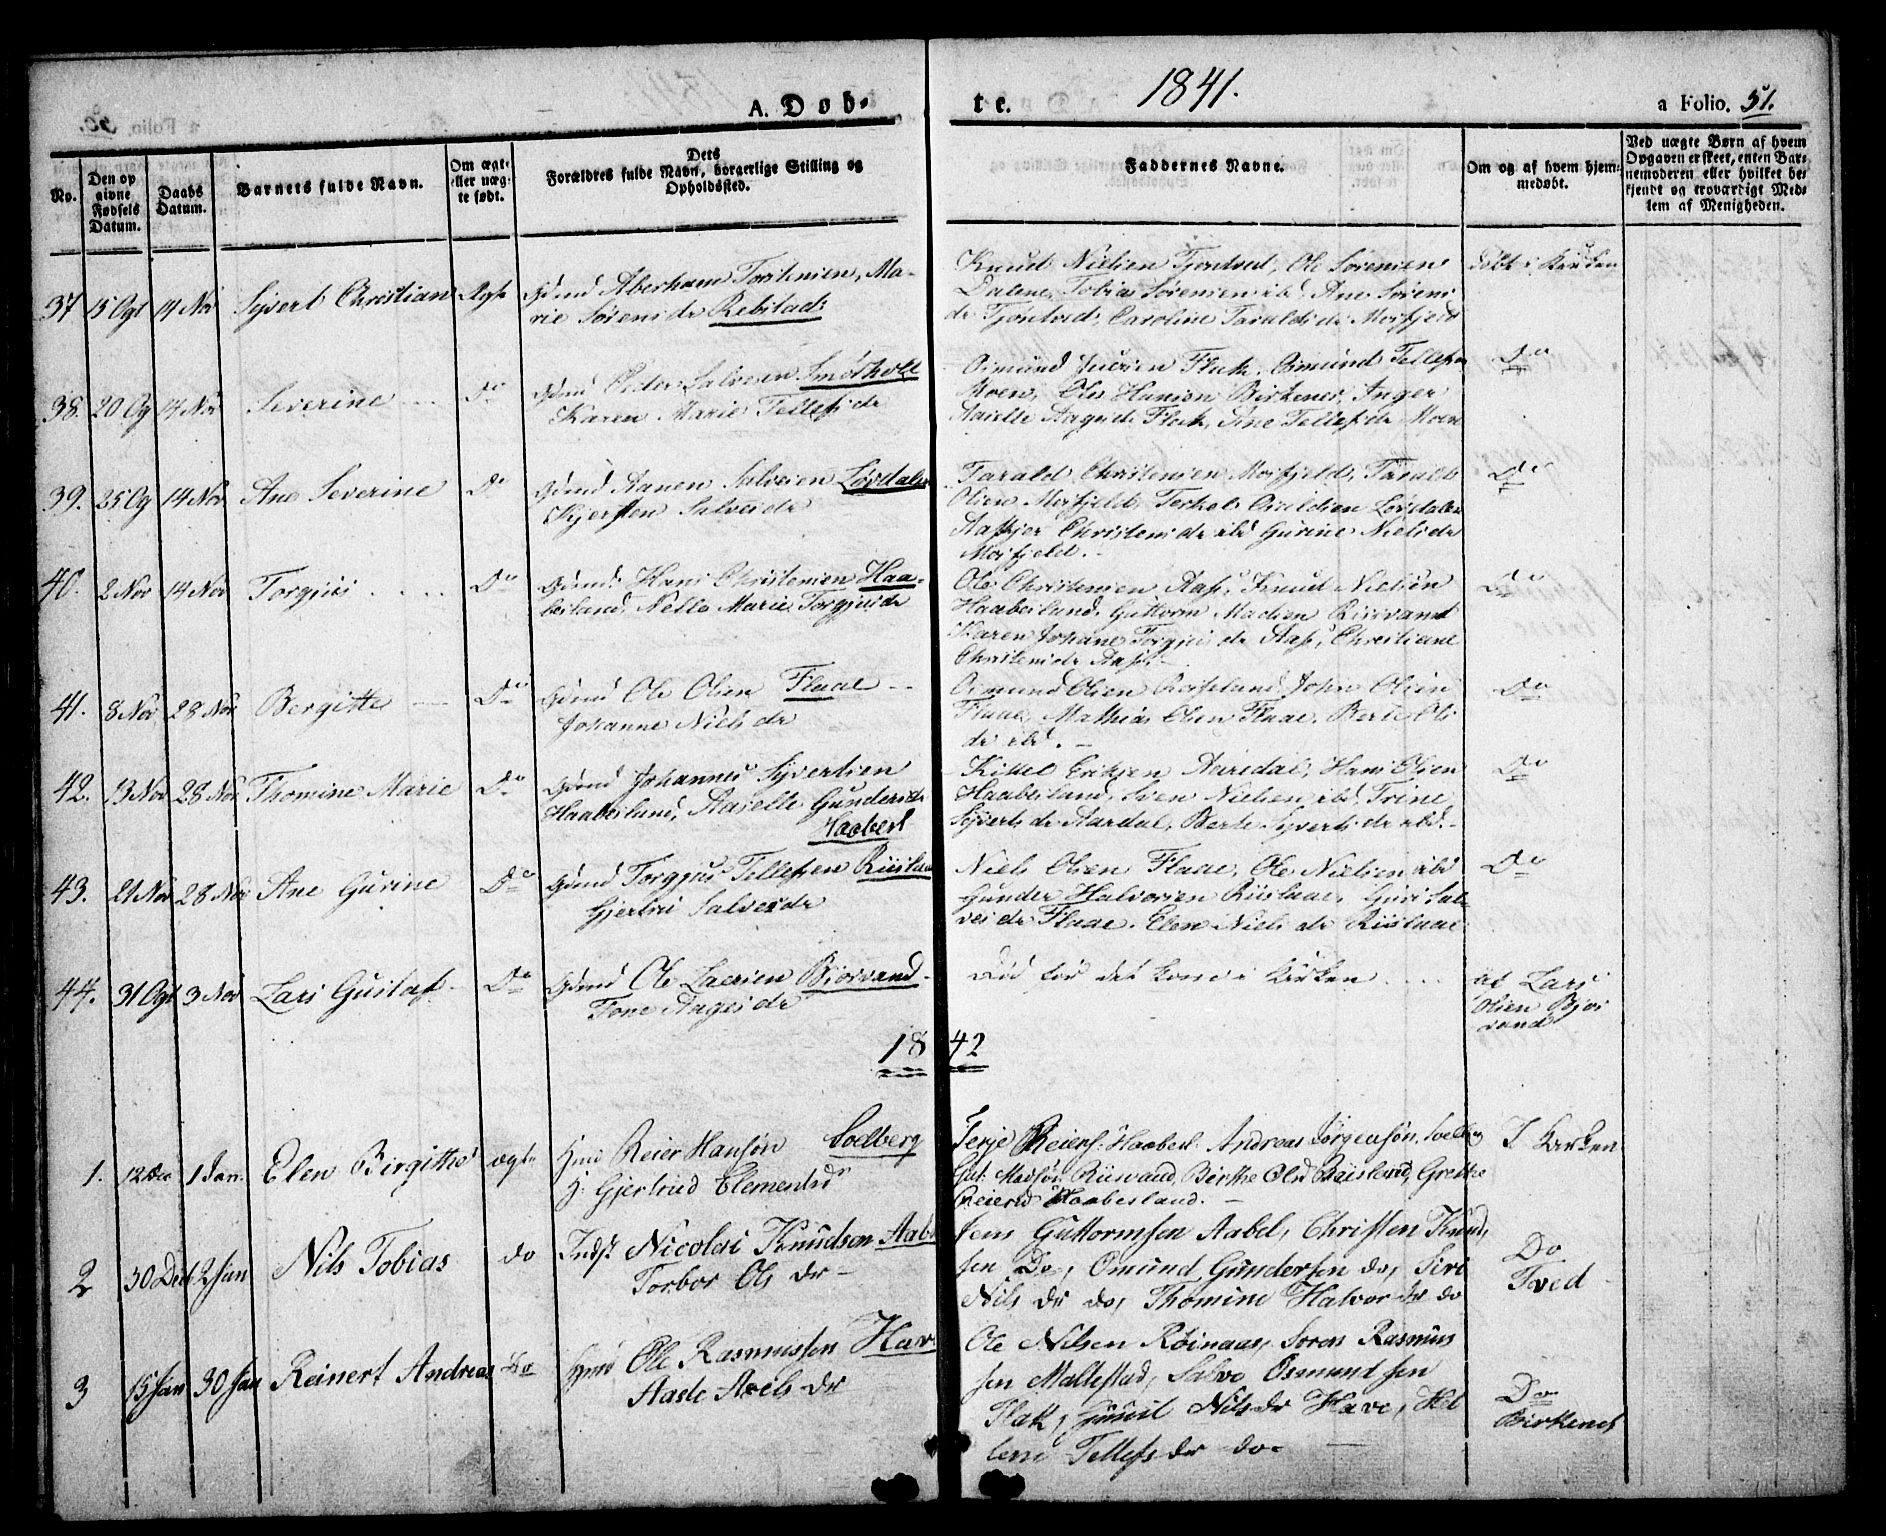 A. Døb-
te.
1841.
a Folio. 51.
No.
Den op
givne
Fødsels
Datum.
Daabs
Datum.
Barnets fulde Navn.
Om ægt-
eller uæg-
te født.
Dets
Forældres fulde Navn, borgerlige Stilling og
Opholdssted.
Faddernes Navne.
Om og af hvem hjem-
medøbt.
Ved uægte Børn af hvem
Opgaven er skeet, enten Bar-
nemoderen eller hvilket be-
kjendt og troværdigt Med-
lem af Menigheden.
37 15 Ogt 14 Nov Syvert Christian Ægte
Gdmd Aberham Torkensen, Ma-
rie Sørensdr Rebstad
Knud Nielsen Tjonted, Ole Sørensen
Dalene, Tobias Sørensen ibd, Ane Sørens
dr Tjonted, Caroline Taraldsdr Mosfjeld
døbt i Kirken
38. 20 Og 14 Nov Severine Do
Gdmd Peder Salvesen Smørholt
Karen Marie Tellefsdr
Osmund Tellefsen
Moen, Ole Hansen Birkenes, Inger
Aaselle Aagesdr Flak, Sine Tellefsdr Moen
Do
39. 25 Og 14 Nov Ane Severine Do
Gdmd Aanen Salvesen Løvdalen
Kjersten Salvesdr
Tarald Christensen Mosfjeld, Tarald
Olsen Mosfjeld, Terkel Løvdalen
Christensdr ibd Gurine Nielsdr
Mosfjeld.
Do
40. 2 Nov 14 Nov Torgjus Do
Gdmd Hans Christensen Haa-
besland, Nelle Marie Torgjusdr
Ole Christensen Aas, Knud Nielsen
Haabesland, Guttorm Madsen Risvand
Karen Johane Torgjusdr Aas, Christiane
Christensdr Aas
Do
41. 8 Nov 28 Nov Bergitte Do
Gdmd Ole Olsen Flaae
Johanne Nielsdr
Osmund Olsen John Olsen
Flaae, Mathias Olsen Flaae, Berte Ols
dr ibd.
Do
42. 13 Nov 28 Nov Thomine Marie Do
Gdmd Johannes Syvertsen
Haabesland, Aaselle Gundersdr
Haabesl
Kittel Eriksen Aaredal, Hans Olsen
Haabesland, Sven Nielsen ibd, Trine
Syvertsdr Aardal, Berte Syvertsdr ibd.
Do
43. 21 Nov 28 Nov Ane Gurine Do
Gdmd Torgjus Tellefsen Riislaa
Gjertru Salvesdr
Niels Olsen Flaae, Ole Nielsen ibd
Gunder Halvorsen Riislaae, Guri Sal-
vesdr Flaae. Elen Nielsdr Riislaae
Do
44. 31 Ogt 3 Nov Lars Gustaf Do
Gdmd Ole Larsen Bjorvand
Tone Aagesdr
Død før det kom i Kirken
af Lars
Olsen Bjor
vand
1842
1. 12 Dec 1 Jan. Elen Birgitte ægte
Hmd Reier Hansøn Soelberg
H: Gjertrud Clementsd
Terje Reiers: Haabesl. Andreas Jørgensøn, Soelberg
Gut: Madsøn Riisvand, Birthe Olsd Grethe
Reiersd Haabesland.
I Kirken
2 30 Dec 2 Jan Nils Tobias do
Indst Nicolai Knudson Aabel
Torbor Ols dr
Jens Guttormsen Aabel, Christen Knud
sen Do, Omund Gundersen do, Siri
Nils dr do, Thomine Halvor dr do
Do
Tved
3 15 Jan 30 Jan Reinert Andreas Do
Hmd Ole Rasmussen Have
Aaste Axels dr
Ole Nilsen Røinaas, Soren Rasmus
sen Maltestad, Salve Osmundsen
Flak, Nils dr Have, Hel
lene Tellefs dr do
Do
Birkenes